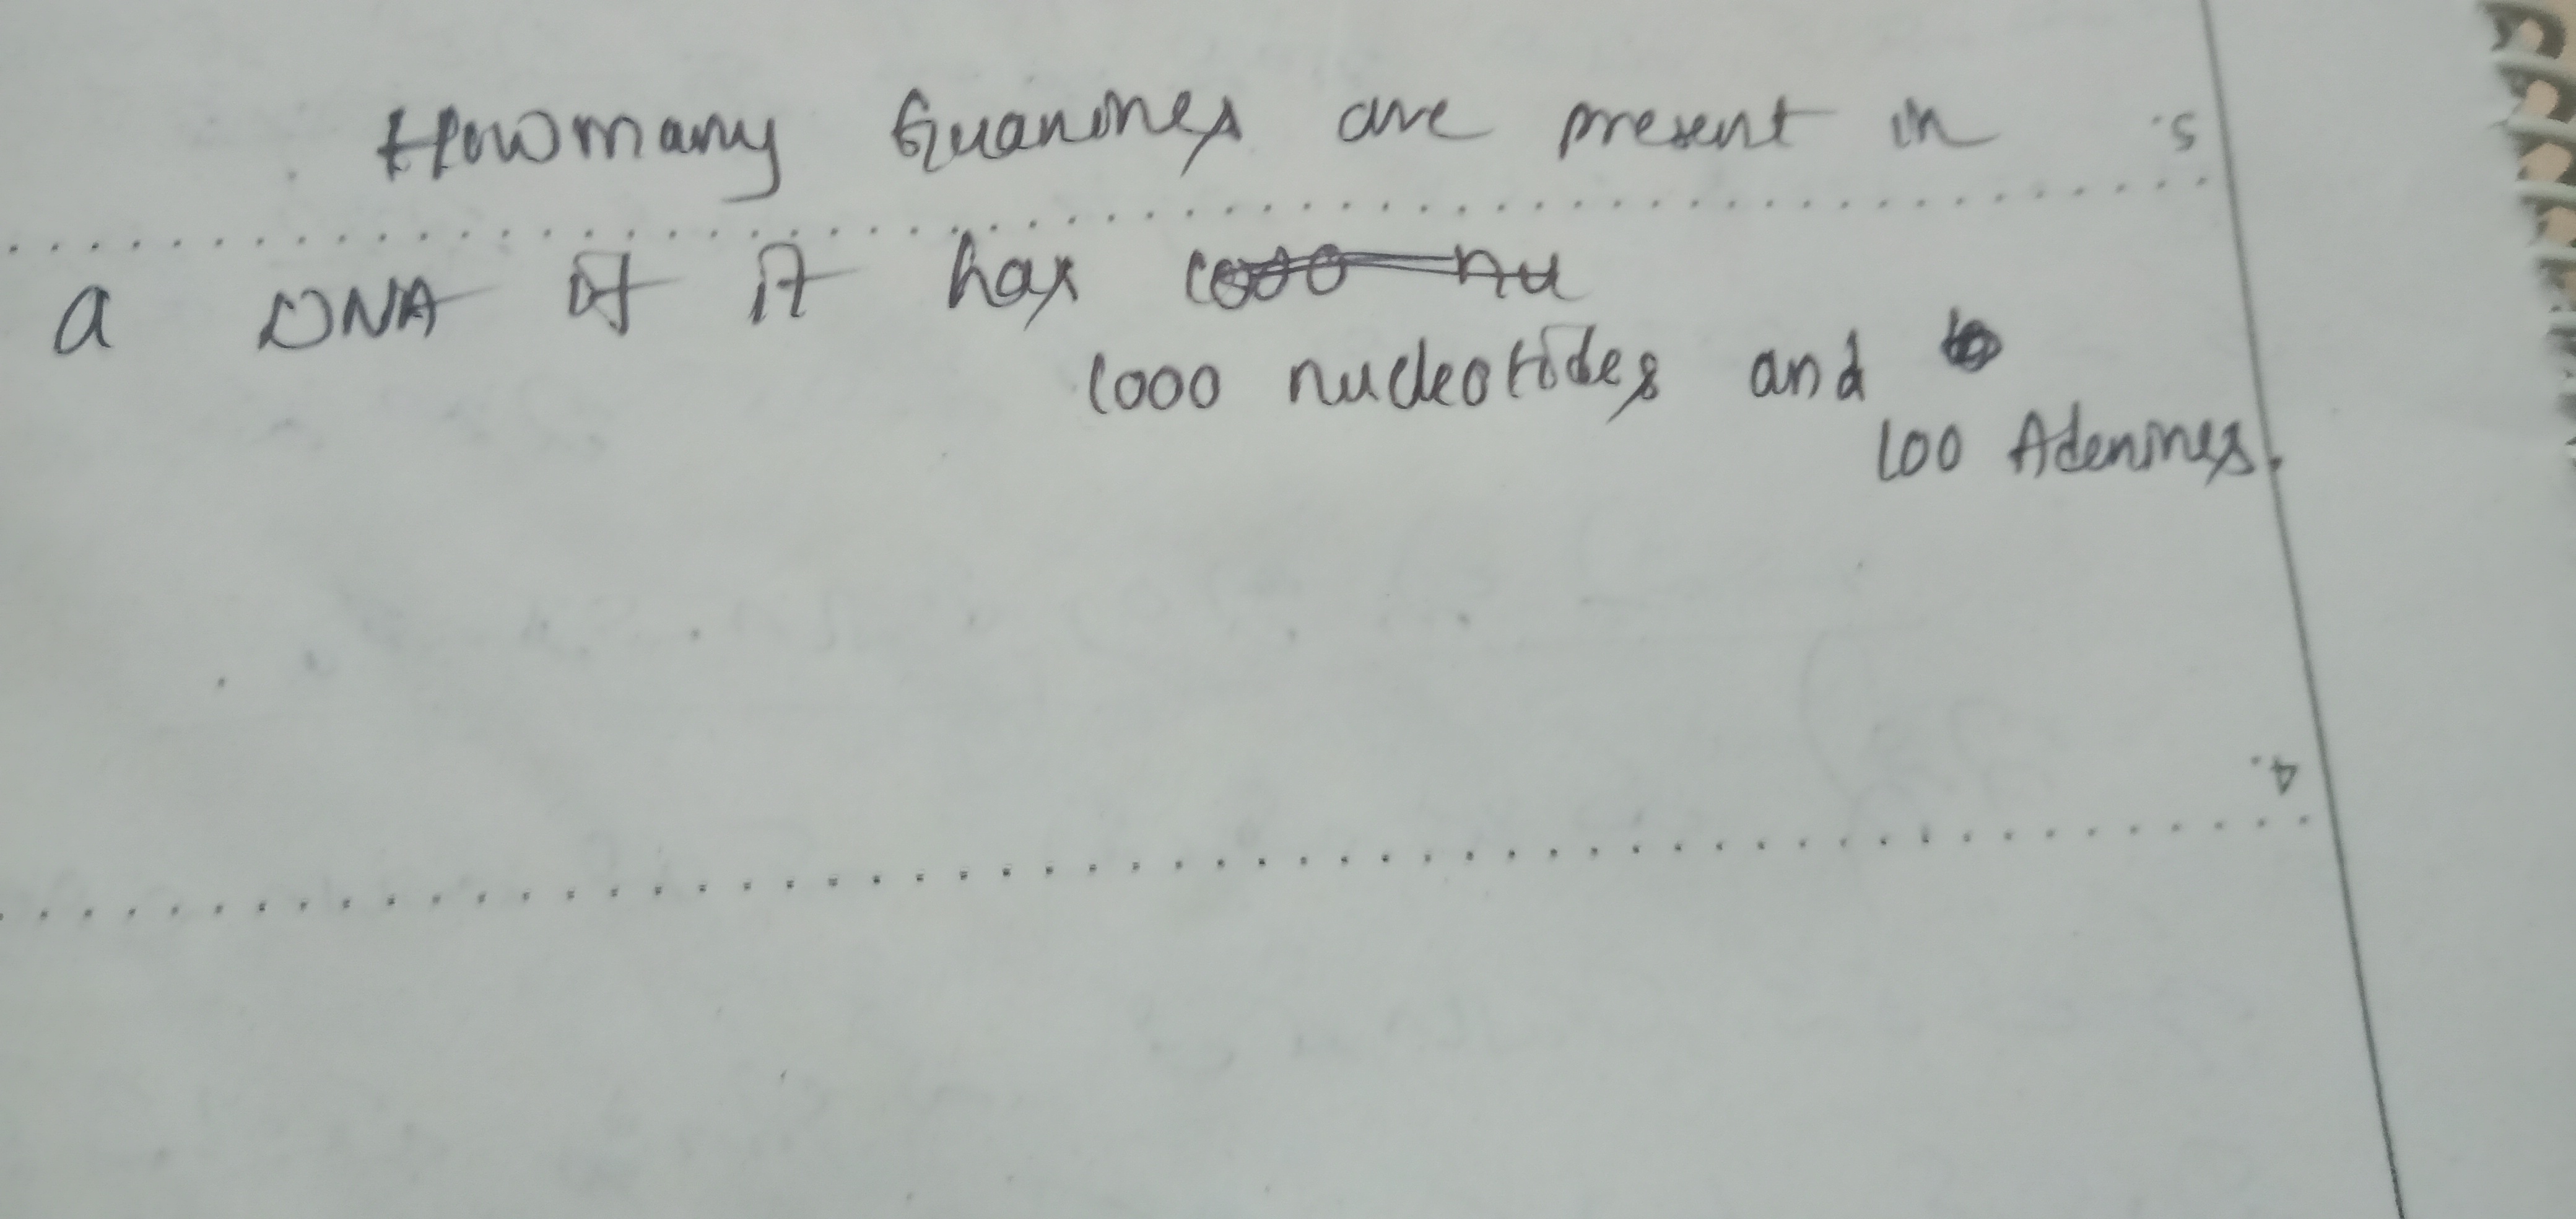 How many Guanines are present in
a DNA if it has
1000 nucleotides and
100 Adenines.
5.
4.